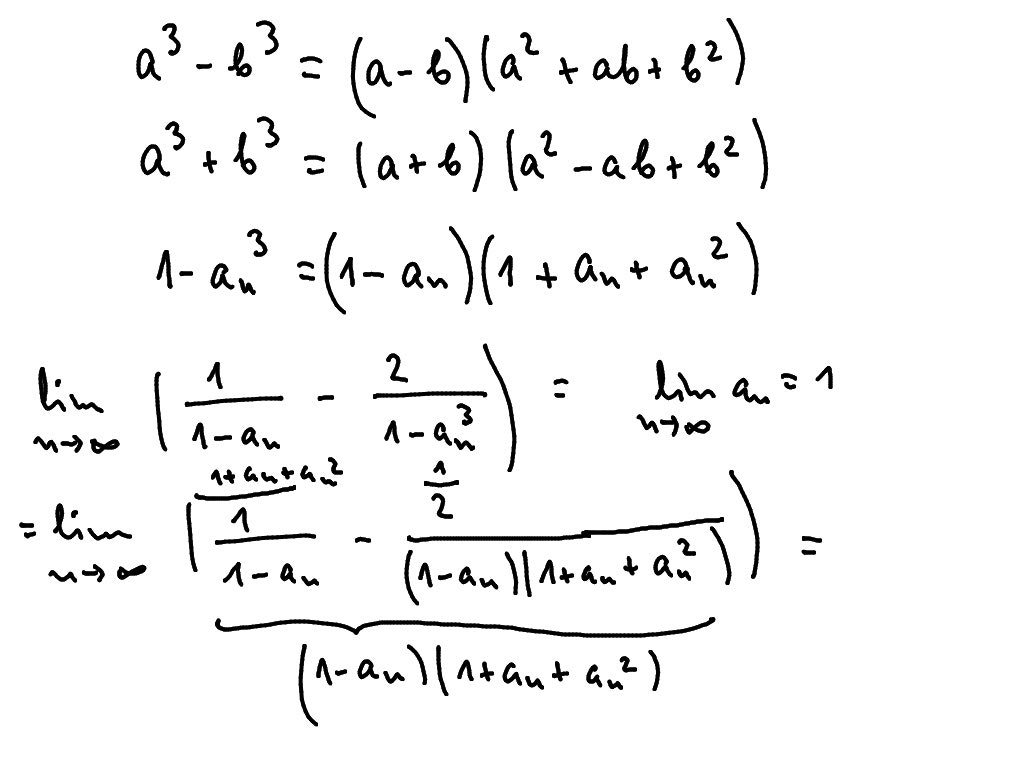 a³ - b³ = (a - b)(a² + ab + b²)
a³ + b³ = (a + b)(a² - ab + b²)
1 - aₙ³ = (1 - aₙ)(1 + aₙ + aₙ²)
lim n→∞ ( 1/(1 - aₙ) - 2/(1 - aₙ³) ) = lim n→∞ aₙ = 1
1 + aₙ + aₙ² 1
= lim n→∞ ( 1/(1 - aₙ) - 2/((1 - aₙ)(1 + aₙ + aₙ²)) ) =
(1 - aₙ)(1 + aₙ + aₙ²)